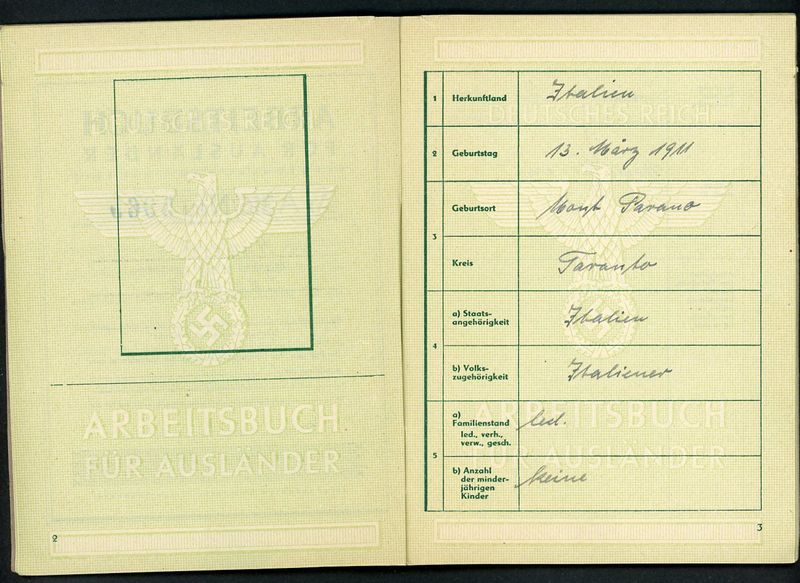 ARBEITSBUCH
FÜR AUSLÄNDER
2
DEUTSCHES REICH
1 Herkunftland Italien
2 Geburtstag 13. März 1911
3 Geburtsort Mont Parano
Kreis Taranto
4 a) Staats-
angehörigkeit Italien
b) Volks-
zugehörigkeit Italiener
5 a)
Familienstand led.
led., verh.,
verw., gesch.
b) Anzahl
der minder-
jährigen
Kinder keine
ARBEITSBUCH
FÜR AUSLÄNDER
3